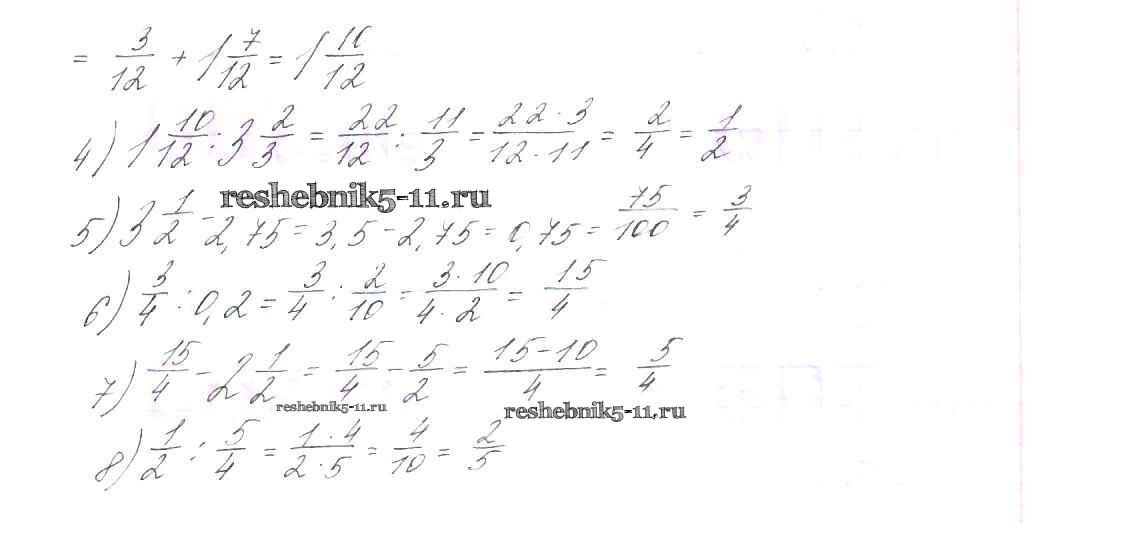 = 3/12 + 1 7/12 = 1 10/12
4) 1 10/12 : 3 2/3 = 22/12 : 11/3 = 22·3/12·11 = 2/4 = 1/2
reshebnik5-11.ru
5) 3 1/2 - 2,75 = 3,5 - 2,75 = 0,75 = 75/100 = 3/4
6) 3/4 : 0,2 = 3/4 : 2/10 = 3·10/4·2 = 15/4
7) 15/4 - 2 1/2 = 15/4 - 5/2 = 15-10/4 = 5/4
reshebnik5-11.ru
reshebnik5-11.ru
8) 1/2 : 5/4 = 1·4/2·5 = 4/10 = 2/5